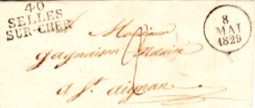 40
SELLES
SUR-CHER
8
MAI
1829
Monsieur
gagnaison Notaire
a St. aignan